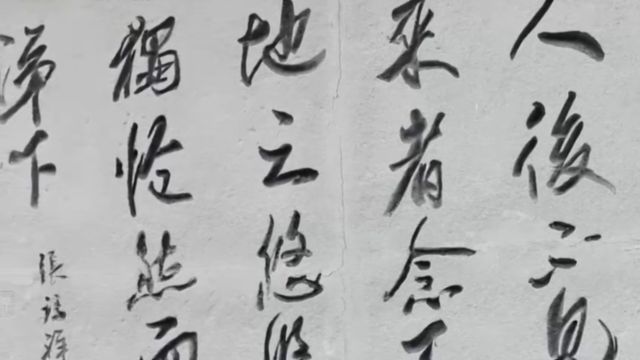 人後不見
来者念天
地之悠悠
獨愴然而
涕下
張